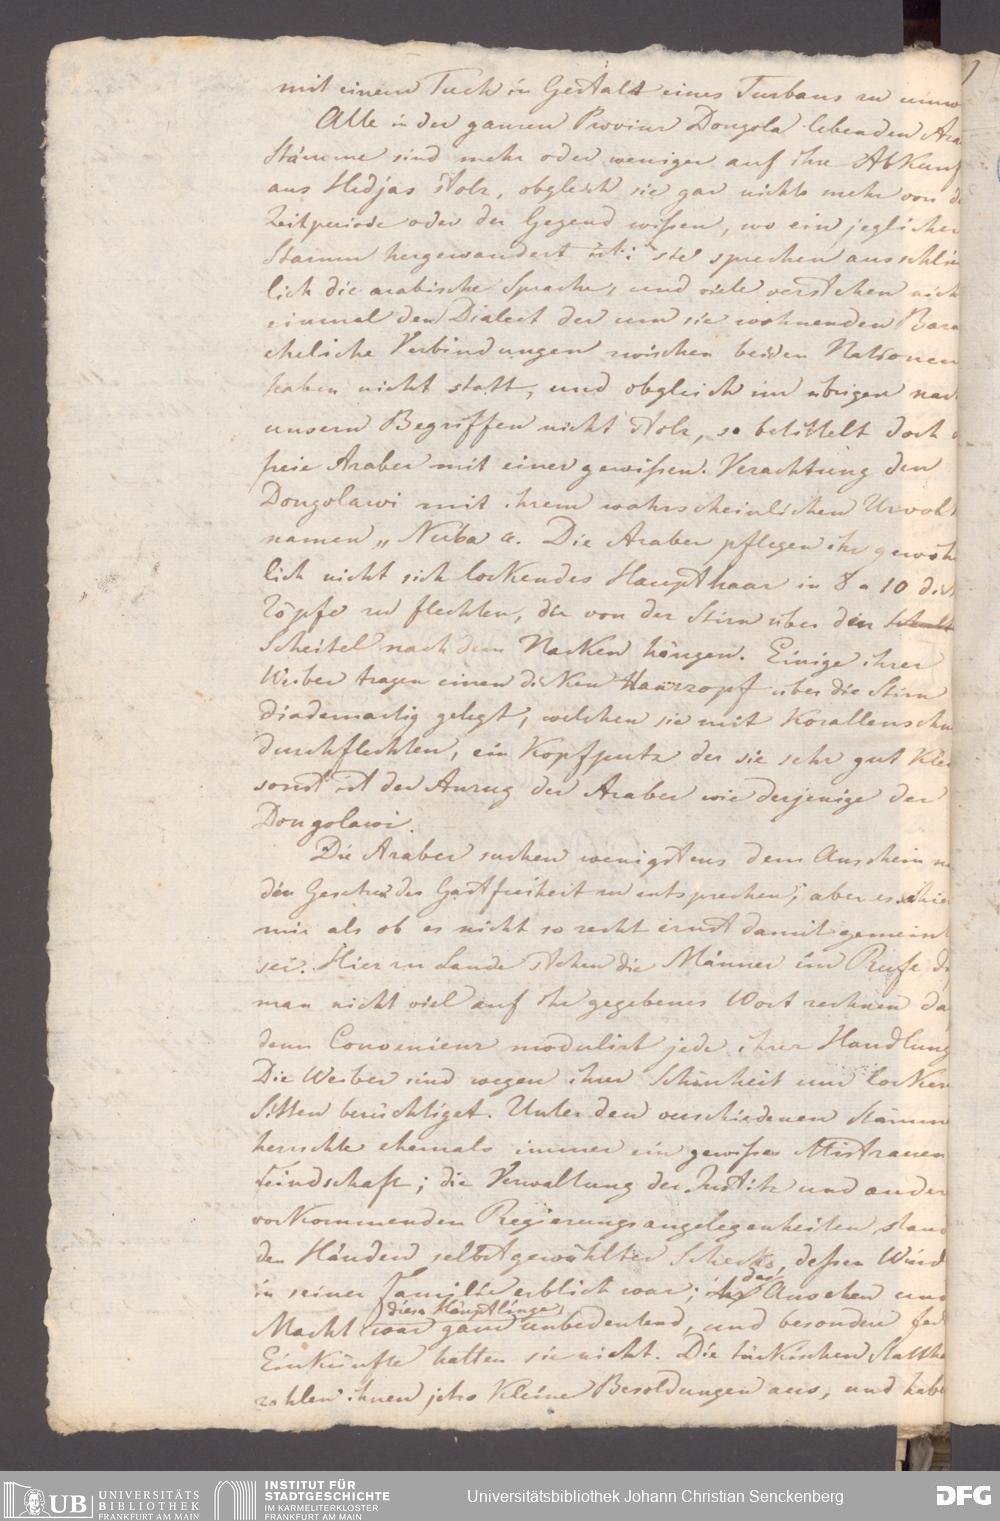 mit einem Tuch in Gestalt eines Turbans zu umw
Alle in der ganzen Provinz Dongola lebenden Ara
Stämme sind mehr oder weniger auf ihre Abkunf
aus Hedjas stolz, obgleich sie gar nichts mehr von d
Zeitperiode oder der Gegend wißen, wo ein jeglicher
Stamm hergewandert ist; sie sprechen ausschließ
lich die arabische Sprache, und viele verstehen nich
einmal den Dialect der um sie wohnenden Bara
eheliche Verbindungen zwischen beiden Nationen
haben nicht statt, und obgleich im übrigen nach
unsern Begriffen nicht stolz, so betittelt doch d
freie Araber mit einer gewißen Verachtung den
Dongolawi mit ihrem wahrscheinlichen Urvolk
namen „Nuba“. Die Araber pflegen ihr gewöhn
lich nicht sich lockendes Haupthaar in 8 a 10 dick
Zöpfe zu flechten, die von der Stirn über den
Scheitel nach dem Nacken hängen. Einige ihrer
Weiber tragen einen dicken Haarzopf über die Stirn
diademartig gelegt, welchen sie mit Korallenschn
durchflechten, ein Kopfputz der sie sehr gut klei
sonst ist der Anzug der Araber wie derjenige der
Dongolawi.
Die Araber suchen wenigstens dem Anschein n
den Gesetzen der Gastfreiheit zu entsprechen; aber es schie
mir als ob es nicht so recht ernst damit gemeint
sei. Hier zu Lande stehen die Männer im Rufe d
man nicht viel auf ihr gegebenes Wort rechnen da
denn Convenienz modulirt jede ihrer Handlung
Die Weiber sind wegen ihrer Schönheit und locker
Sitten berüchtiget. Unter den verschiedenen Stämm
herrschte ehemals immer ein gewißes Mistrauen
Feindschaft; die Verwaltung der Justitz und ander
vorkommenden Regierungsangelegenheiten stand
den Händen selbstgewählter Scheks, deßen Würd
in seiner Familie erblich war; das Ansehen und
diese Häuptlinge
Macht war ganz unbedeutend, und besondere fes
Einkünfte hatten sie nicht. Die türkischen Statthal
zahlen ihnen jetzo kleine Besoldungen aus, und habe
UB UNIVERSITÄTS
BIBLIOTHEK
FRANKFURT AM MAIN
INSTITUT FÜR
STADTGESCHICHTE
IM KARMELITERKLOSTER
FRANKFURT AM MAIN
Universitätsbibliothek Johann Christian Senckenberg
DFG